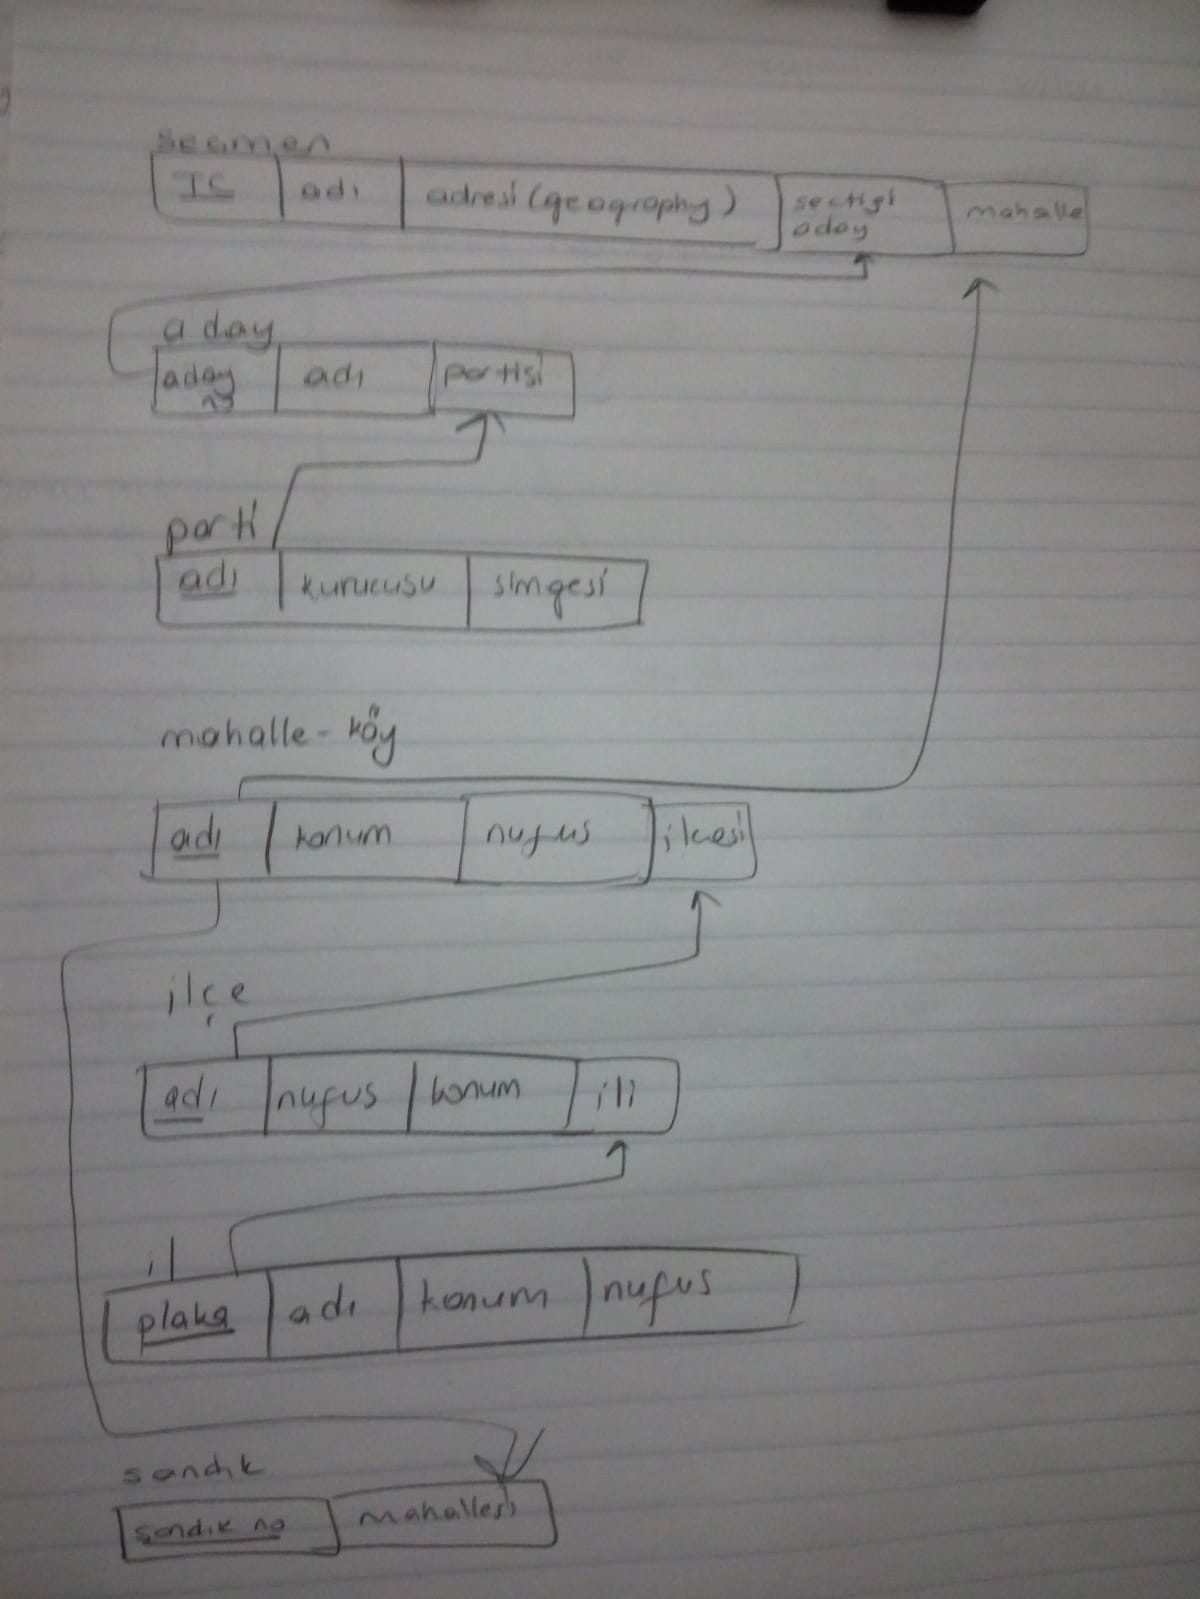 secmen
TC adı adresi (geography) sectigi aday mahalle
aday
aday adı partisi
parti
adı kurucusu simgesi
mahalle - köy
adı konum nufus ilcesi
ilçe
adı nufus konum ili
il
plaka adı konum nufus
sandık
sandık no mahallesi